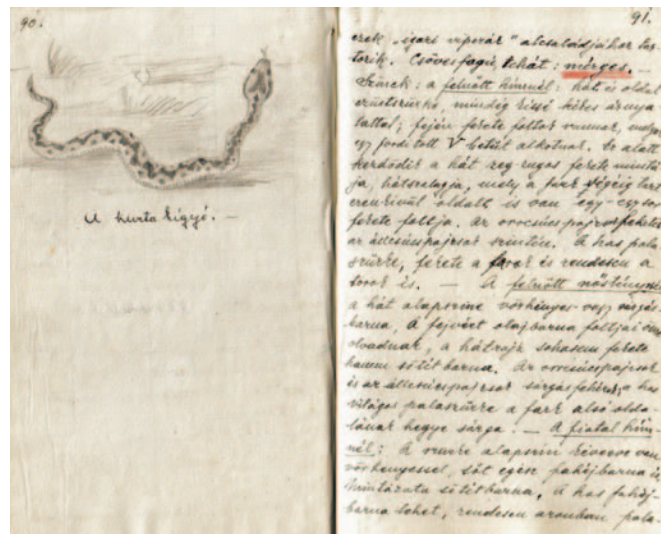 90.
A kurta kígyó. —
91.
ezek „igazi viperák" alcsaládjához tar-
torik. Csövesfogú, tehát: mérges. —
Színek: a felnőtt hímnél: hát és oldal
ezüstszürke, mindig kissé kékes árnya-
lattal; fején fekete foltok vannak, melyek
egy fordított V betűt alkotnak. Ez alatt
kezdődik a hát zeg-zugos fekete mintá-
ja, hátszalagja, mely a fark végéig tart
ezenkívül oldalt is van egy-egy sor
fekete foltja. Az orrcsúcspajzs fekete
az állcsúcspajzsok szintén. A has pala
szürke, fekete a farok és rendesen a
torok is. — A felnőtt nősténynél
a hát alapszíne vörhenyes- vagy sárgás-
barna, A fejvért olajbarna foltjai
olvadnak, a hátrajz sohasem fekete
hanem sötétbarna. Az orrcsúcspajzsok
és az állcsúcspajzsok sárgásfehérek, a has
világos palaszürke a fark alsó olda-
lának hegye sárga. — A fiatal hím-
nél: A szürke alapszín keverve van
vörhenyessel, sőt egész fahéjbarna is,
mintázata sötétbarna. A has fahéj-
barna lehet, rendesen azonban pala-